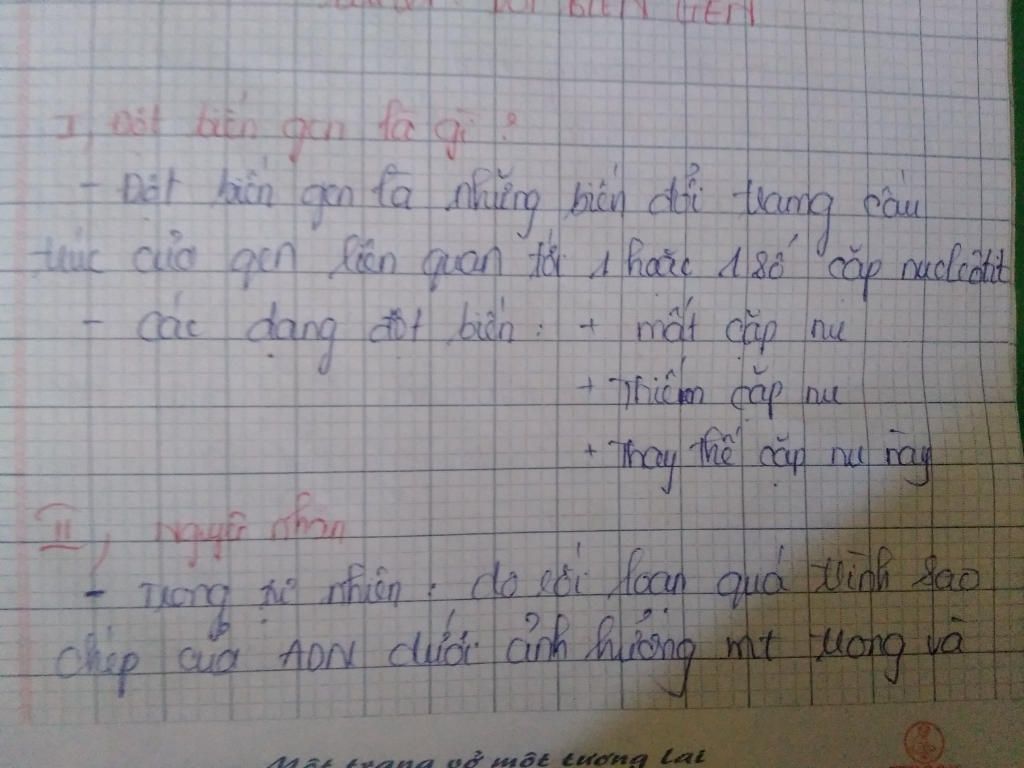 ĐỘT BIẾN GEN
I, Đột biến gen là gì?
- Đột biến gen là những biến đổi trong cấu
trúc của gen liên quan tới 1 hoặc 1 số cặp nuclêôtit
- Các dạng đột biến: + mất cặp nu
+ Thiêm cặp nu
+ Thay thế cặp nu này
II, Nguyên nhân
- Trong tự nhiên: do rối loạn quá trình sao
chép của ADN dưới ảnh hưởng mt trong và
Một trang vở một tương lai